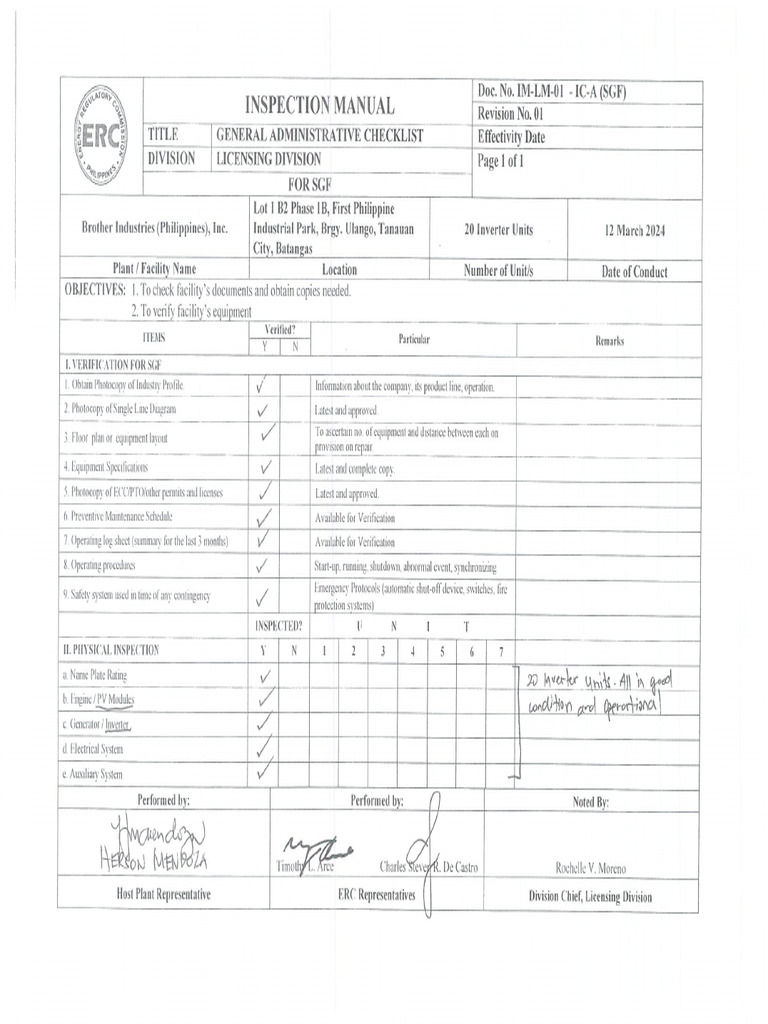 ENERGY REGULATORY COMMISSION
ERC
PHILIPPINES
INSPECTION MANUAL
TITLE GENERAL ADMINISTRATIVE CHECKLIST
DIVISION LICENSING DIVISION
FOR SGF
Doc. No. IM-LM-01 - IC-A (SGF)
Revision No. 01
Effectivity Date
Page 1 of 1
Brother Industries (Philippines), Inc.
Lot 1 B2 Phase 1B, First Philippine
Industrial Park, Brgy. Ulango, Tanauan
City, Batangas
20 Inverter Units
12 March 2024
Plant / Facility Name Location Number of Unit/s Date of Conduct
OBJECTIVES: 1. To check facility's documents and obtain copies needed.
2. To verify facility's equipment
ITEMS Verified? Particular Remarks
Y N
I. VERIFICATION FOR SGF
1. Obtain Photocopy of Industry Profile. ✓ Information about the company, its product line, operation.
2. Photocopy of Single Line Diagram ✓ Latest and approved.
3. Floor plan or equipment layout ✓ To ascertain no. of equipment and distance between each on
provision on repair.
4. Equipment Specifications ✓ Latest and complete copy.
5. Photocopy of ECC/PTO/other permits and licenses ✓ Latest and approved.
6. Preventive Maintenance Schedule ✓ Available for Verification
7. Operating log sheet (summary for the last 3 months) ✓ Available for Verification
8. Operating procedures ✓ Start-up, running, shutdown, abnormal event, synchronizing
9. Safety system used in time of any contingency ✓ Emergency Protocols (automatic shut-off device, switches, fire
protection systems)
INSPECTED? U N I T
II. PHYSICAL INSPECTION Y N 1 2 3 4 5 6 7
a. Name Plate Rating ✓
b. Engine / PV Modules ✓
c. Generator / Inverter ✓
d. Electrical System ✓
e. Auxiliary System ✓
20 Inverter Units. All in good
condition and operational
Performed by: Performed by: Noted By:
HERSON MENDOZA
Timothy L. Arce Charles Steven R. De Castro Rochelle V. Moreno
Host Plant Representative ERC Representatives Division Chief, Licensing Division